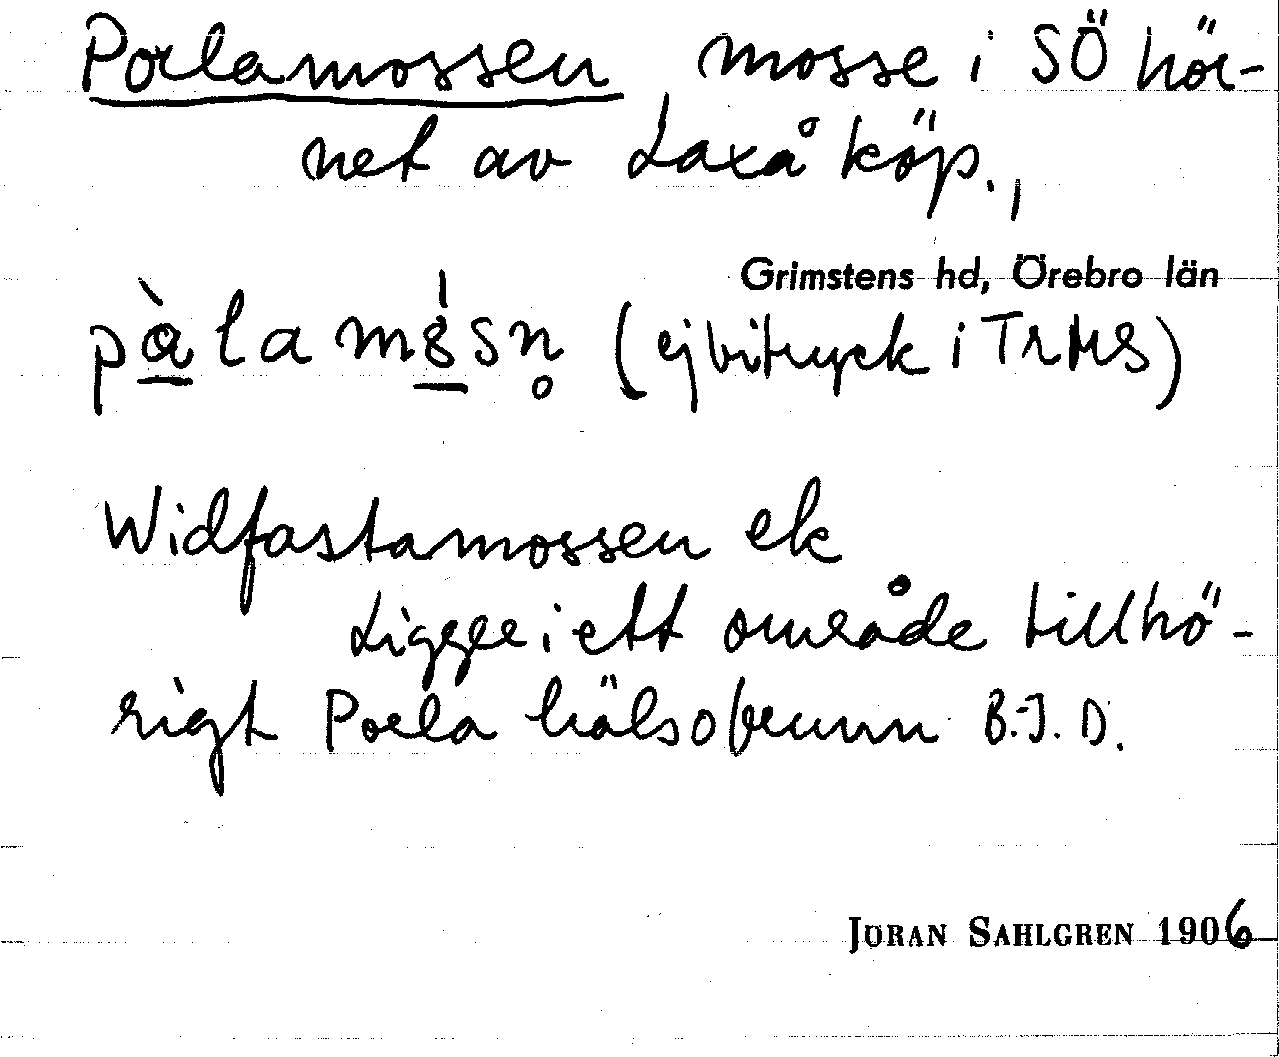 Porlamossen mosse i SÖ hör-
net av Laxå köp.,
Grimstens hd, Örebro län
pàlamsn̥ (ej bitryck i TrMS)
Widfastamossen ek
Ligger i ett område tillhö-
rigt Porla hälsobrunn B.J.D.
JÖRAN SAHLGREN 1906